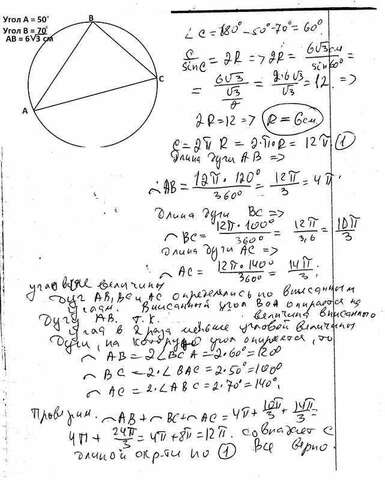 Угол A = 50°
Угол B = 70°
AB = 6√3 см
B
A
C
∠C = 180° - 50° - 70° = 60°
C/sinC = 2R => 2R = 6√3 см/sin60° =
= 6√3/(√3/2) = 2·6√3/√3 = 12 =>
2R = 12 => R = 6см
C = 2πR = 2·π·6 = 12π (1)
Длина дуги AB =>
◠AB = 12π·120°/360° = 12π/3 = 4π
Длина дуги BC =>
◠BC = 12π·100°/360° = 12π/3,6 = 10π/3
Длина дуги AC =>
◠AC = 12π·140°/360° = 14π/3
угловые величины
Дуг AB, BC и AC определялись по вписанным
углам. Вписанный угол BCA опирается на
Дугу AB. Т.к. величина вписанного
угла в 2 раза меньше угловой величины
Дуги, на которую угол опирается, то
◠AB = 2∠BCA = 2·60° = 120°
◠BC = 2·∠BAC = 2·50° = 100°
◠AC = 2·∠ABC = 2·70° = 140°
Проверим. ◠AB + ◠BC + ◠AC = 4π + 10π/3 + 14π/3 =
4π + 24π/3 = 4π + 8π = 12π. совпадает с
длиной окр-ти по (1) Все верно.